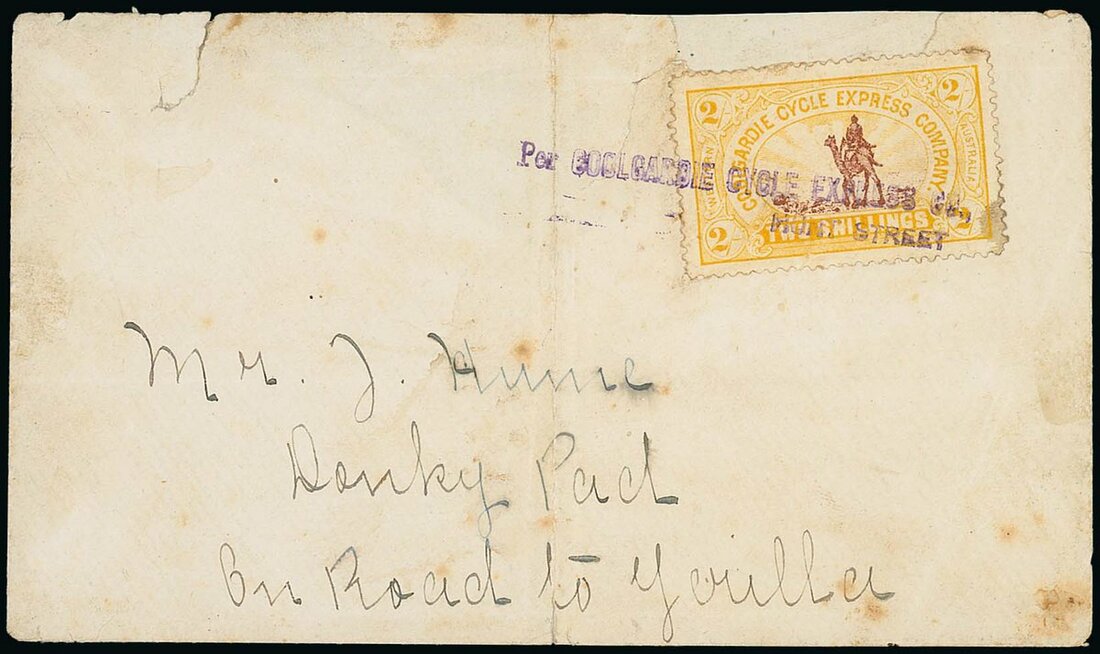 2 2
COOLGARDIE CYCLE EXPRESS COMPANY
WESTERN AUSTRALIA
TWO SHILLINGS
2 2
Per COOLGARDIE CYCLE EXPRESS Co.,
STREET
Mr. J. Hume
Donky Pad
On Road to Youlla